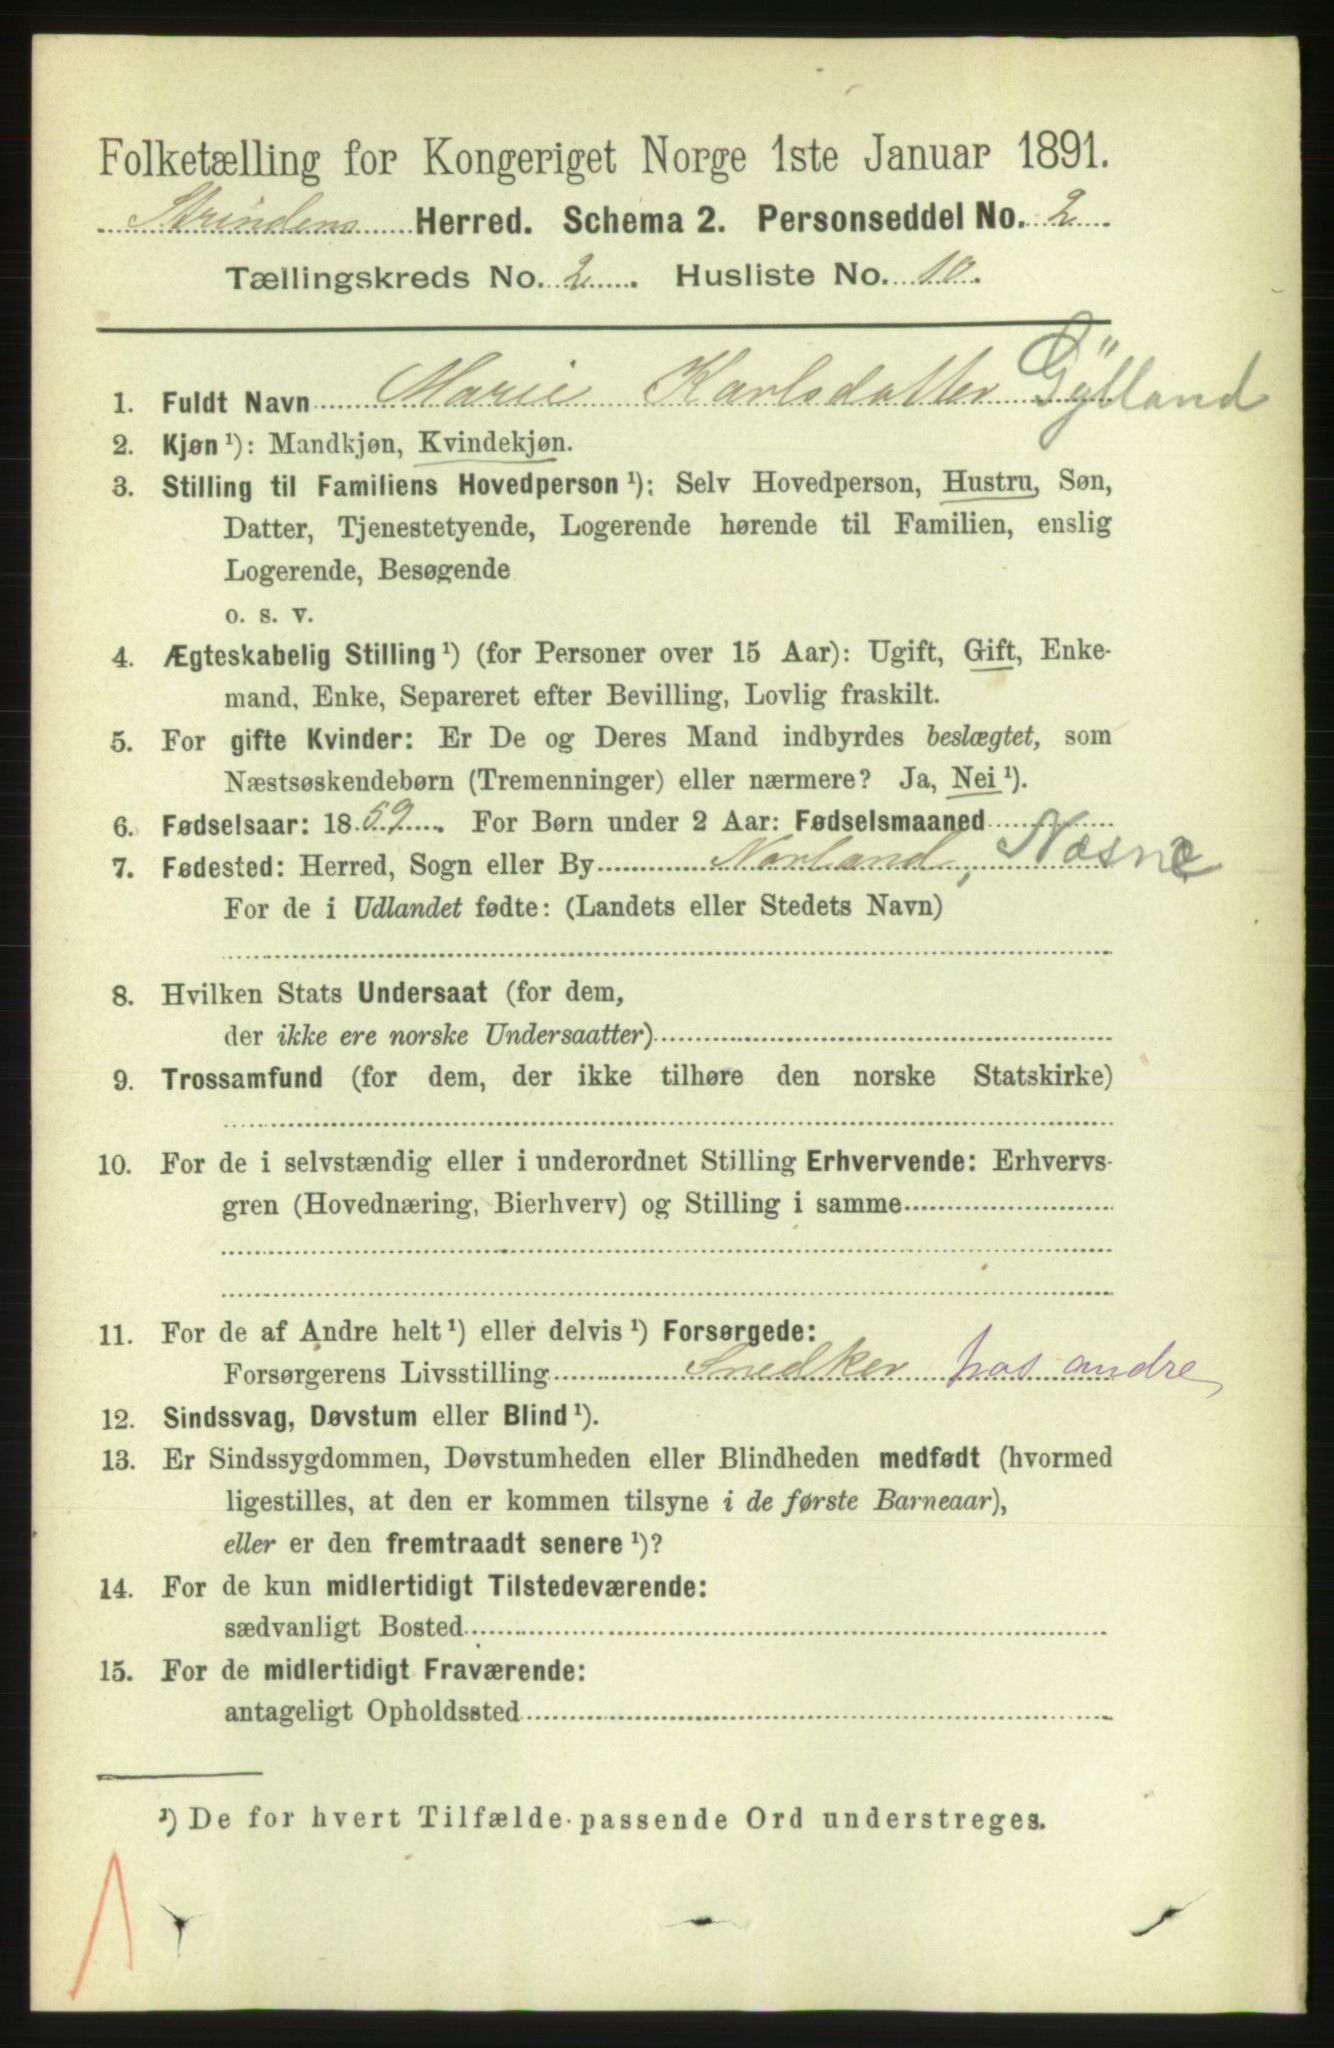 Folketælling for Kongeriget Norge 1ste Januar 1891.
Strindens Herred. Schema 2. Personseddel No. 2
Tællingskreds No. 2. Husliste No. 10.
1. Fuldt Navn Marie Karlsdatter Gÿlland
2. Kjøn ¹): Mandkjøn, Kvindekjøn.
3. Stilling til Familiens Hovedperson ¹): Selv Hovedperson, Hustru, Søn,
Datter, Tjenestetyende, Logerende hørende til Familien, enslig
Logerende, Besøgende
o. s. v.
4. Ægteskabelig Stilling ¹) (for Personer over 15 Aar): Ugift, Gift, Enke-
mand, Enke, Separeret efter Bevilling, Lovlig fraskilt.
5. For gifte Kvinder: Er De og Deres Mand indbyrdes beslægtet, som
Næstsøskendebørn (Tremenninger) eller nærmere? Ja, Nei ¹).
6. Fødselsaar: 1859. For Børn under 2 Aar: Fødselsmaaned
7. Fødested: Herred, Sogn eller By Norland, Næsne
For de i Udlandet fødte: (Landets eller Stedets Navn)
8. Hvilken Stats Undersaat (for dem,
der ikke ere norske Undersaatter)
9. Trossamfund (for dem, der ikke tilhøre den norske Statskirke)
10. For de i selvstændig eller i underordnet Stilling Erhvervende: Erhvervs-
gren (Hovednæring, Bierhverv) og Stilling i samme
11. For de af Andre helt ¹) eller delvis ¹) Forsørgede:
Forsørgerens Livsstilling Snedker hos andre
12. Sindssvag, Døvstum eller Blind ¹).
13. Er Sindssygdommen, Døvstumheden eller Blindheden medfødt (hvormed
ligestilles, at den er kommen tilsyne i de første Barneaar),
eller er den fremtraadt senere ¹)?
14. For de kun midlertidigt Tilstedeværende:
sædvanligt Bosted
15. For de midlertidigt Fraværende:
antageligt Opholdssted
¹) De for hvert Tilfælde passende Ord understreges.